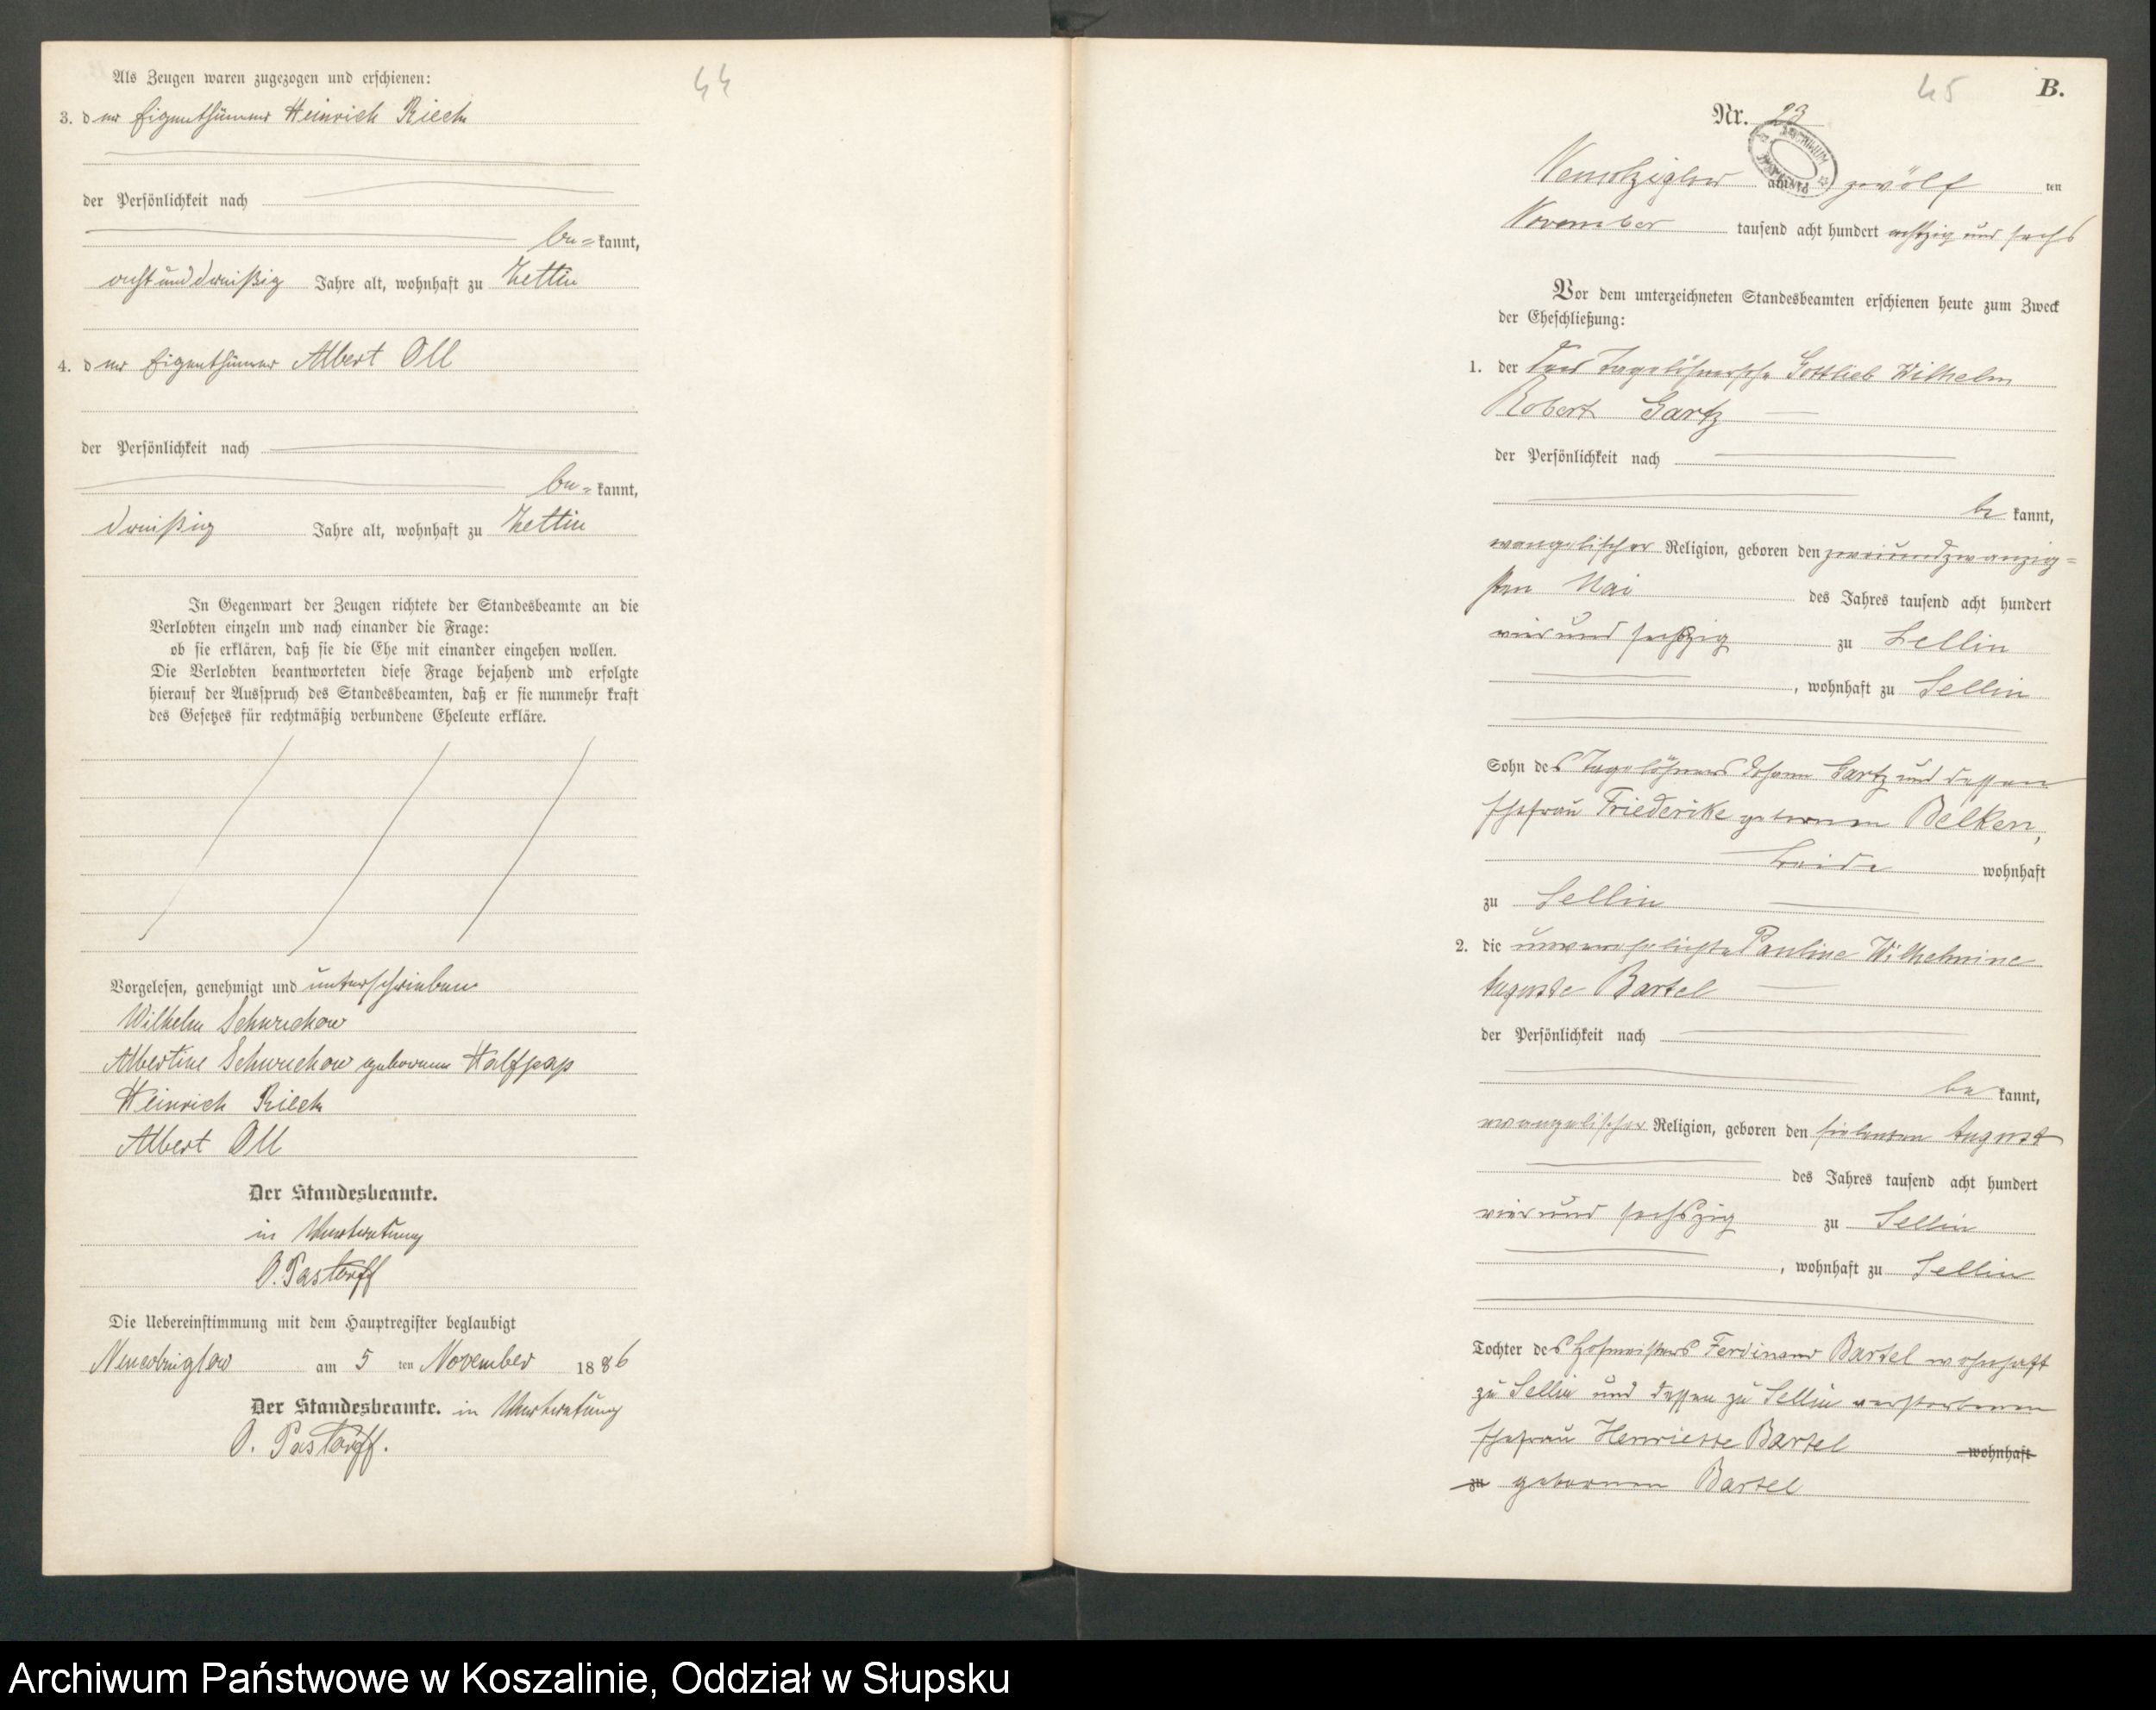 44
Als Zeugen waren zugezogen und erschienen:
3. der Eigenthümer Heinrich Riech
der Persönlichkeit nach
be=kannt,
acht und dreißig Jahre alt, wohnhaft zu Zettin
4. der Eigenthümer Albert Oll
der Persönlichkeit nach
be=kannt,
dreißig Jahre alt, wohnhaft zu Zettin
In Gegenwart der Zeugen richtete der Standesbeamte an die
Verlobten einzeln und nach einander die Frage:
ob sie erklären, daß sie die Ehe mit einander eingehen wollen.
Die Verlobten beantworteten diese Frage bejahend und erfolgte
hierauf der Ausspruch des Standesbeamten, daß er sie nunmehr kraft
des Gesetzes für rechtmäßig verbundene Eheleute erkläre.
Vorgelesen, genehmigt und unterschrieben
Wilhelm Schwuchow
Albertine Schwuchow geborenen Halfpap
Heinrich Riech
Albert Oll
Der Standesbeamte.
in Vertretung
O. Pastorff
Die Uebereinstimmung mit dem Hauptregister beglaubigt
am 5 ten November 1886
Der Standesbeamte. in Vertretung
O. Pastorff.
45
B.
Nr. 23
am zwölf ten
November tausend acht hundert achtzig und sechs
Vor dem unterzeichneten Standesbeamten erschienen heute zum Zweck
der Eheschließung:
1. der Tagelöhnersohn Gottlieb Wilhelm
Robert Gartz
der Persönlichkeit nach
be kannt,
evangelischer Religion, geboren den zweiundzwanzig=
sten Mai des Jahres tausend acht hundert
vier und sechszig zu Sellin
, wohnhaft zu Sellin
Sohn des Tagelöhners Johann Gartz und dessen
Ehefrau Friederike geborenen Belken,
beide wohnhaft
zu Sellin
2. die unverehelichte Pauline Wilhelmine
Auguste Bartel
der Persönlichkeit nach
be kannt,
evangelischer Religion, geboren den siebenten August
des Jahres tausend acht hundert
vier und sechszig zu Sellin
, wohnhaft zu Sellin
Tochter des Hofmeisters Ferdinand Bartel wohnhaft
zu Sellin und dessen zu Sellin verstorbenen
Ehefrau Henriette Bartel wohnhaft
zu geborenen Bartel
Archiwum Państwowe w Koszalinie, Oddział w Słupsku